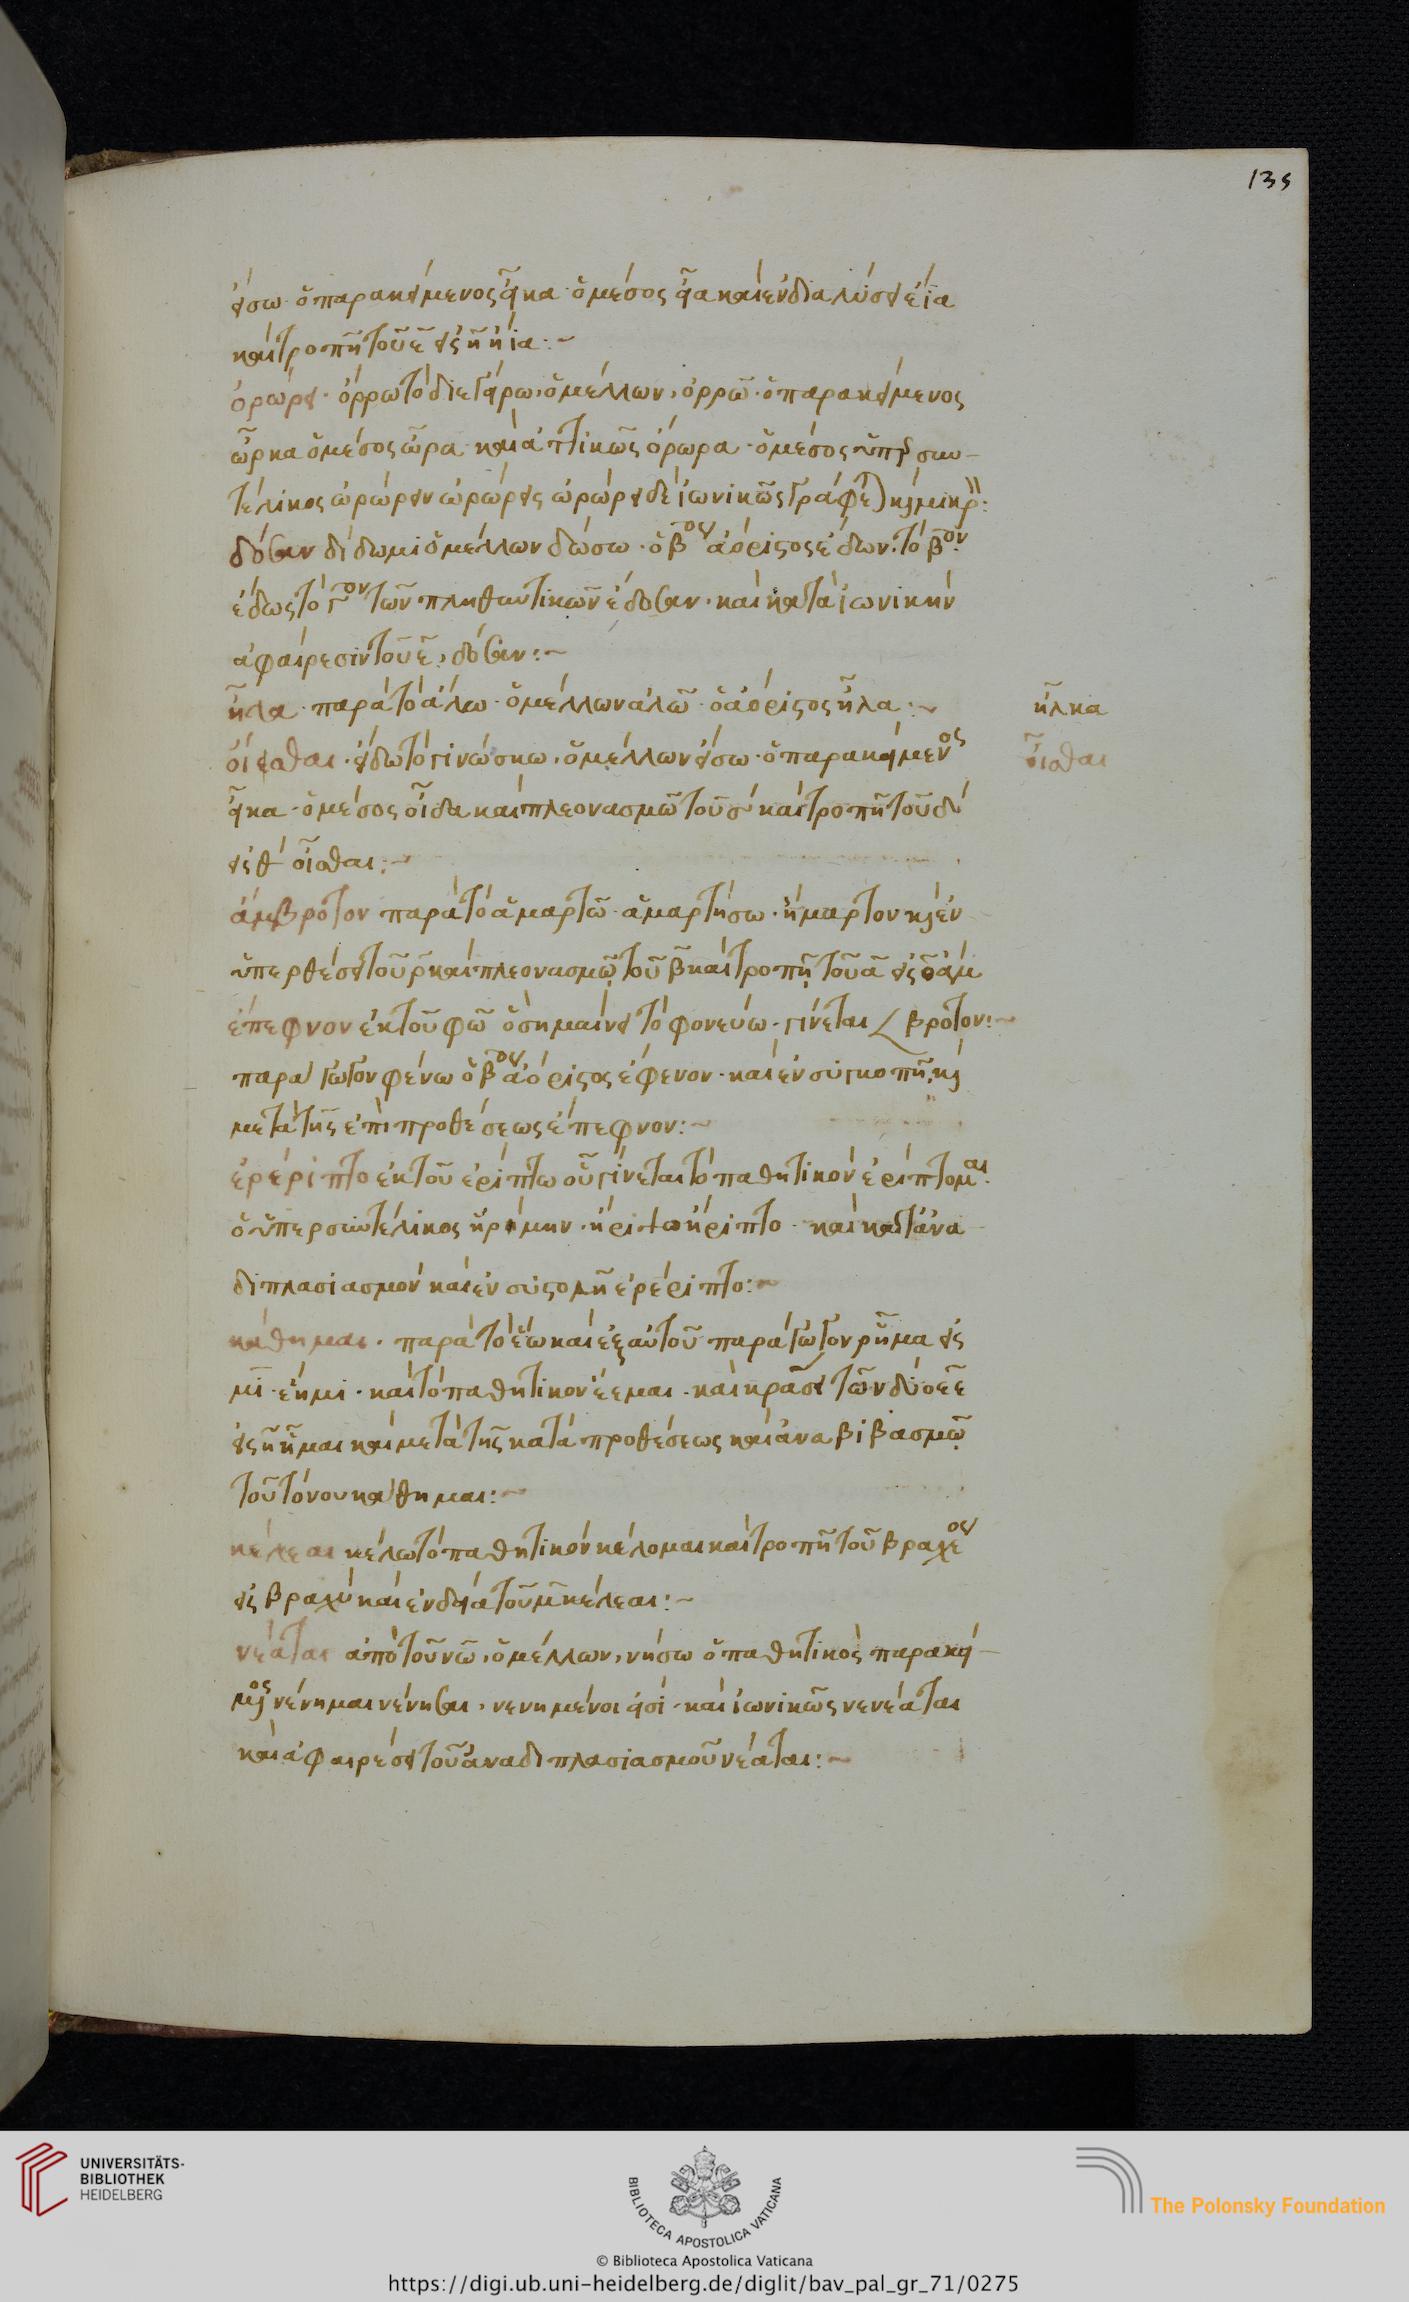 135
εἴσω· ὁ παρακείμενος εἶκα· ὁ μέσος εἶα καὶ ἐν διαλύσει έϊα
καὶ τροπῇ τοῦ ε̄ εἰς η̄ ἤϊα :~
ὀρώρει· ὄρρω τὸ διεγείρω, ὁ μέλλων, ὀρρῶ· ὁ παρακείμενος
ὦρκα ὁ μέσος ὦρα καὶ ἀττικῶς ὄρωρα· ὁ μέσος ὑπερσυν-
τέλικος ὠρώρειν ὠρώρεις ὠρώρει δὲ ἰωνικῶς γράφεται κ μικρ:
δόσαν δίδωμι ὁ μέλλων δώσω· ὁ β̄ος ἀόριστος ἔδων. τὸ β̄ον
ἔδως τὸ γ̄ον τῶν πληθυντικῶν ἔδοσαν· καὶ κατὰ ἰωνικὴν
ἀφαίρεσιν τοῦ ε̄, δόσαν :~
ἦλα παρὰ τὸ ἄλω· ὁ μέλλων ἀλῶ· ὁ ἀόριστος ἦλα :~
ἦλκα
οἶσθαι· εἴδω τὸ γινώσκω, ὁ μέλλων εἴσω· ὁ παρακείμενος
οἶσθαι
εἶκα· ὁ μέσος οἶδα καὶ πλεονασμῶ τοῦ σ καὶ τροπῇ τοῦ δ
εἰς θ οἶσθαι :~
ἄμβροτον παρὰ τὸ ἁμαρτῶ· ἁμαρτήσω· ἥμαρτον κ ἐν
ὑπερθέσει τοῦ ρ̄ καὶ πλεονασμῷ τοῦ β̄ καὶ τροπῇ τοῦ ᾱ εἰς ο̄ ἄμ
βροτον :~
ἔπεφνον ἐκ τοῦ φῶ ὃ σημαίνει τὸ φονεύω· γίνεται
παράγωγον φένω ὁ β̄ος ἀόριστος ἔφενον· καὶ ἐν συγκοπῇ, κ
μετὰ τῆς ἐπὶ προθέσεως ἔπεφνον :~
ἐρέριπτο ἐκ τοῦ ἐρίπτω οὗ γίνεται τὸ παθητικὸν ἐρίπτομαι.
ὁ ὑπερσυντέλικος ἠρίμην· ἤριψο ἤριπτο καὶ κατὰ ἀνα-
διπλασιασμὸν καὶ ἐν συστολῇ ἐρέριπτο :~
κάθημαι· παρὰ τὸ ἕω καὶ ἐξ αὐτοῦ παράγωγον ῥῆμα εἰς
μῑ· ἕημι· καὶ τὸ παθητικὸν ἕεμαι· καὶ κράσει τῶν δύο ε̄ε̄
εἰς η̄ ἧμαι καὶ μετὰ τῆς κατὰ προθέσεως καὶ ἀναβιβασμῷ
τοῦ τόνου κάθημαι :~
κέλεαι κέλω τὸ παθητικὸν κέλομαι καὶ τροπῇ τοῦ βραχέος
εἰς βραχὺ καὶ ἐνδεία τοῦ μ̄ κέλεαι :~
νέαται ἀπὸ τοῦ νῶ, ὁ μέλλων, νήσω ὁ παθητικὸς παρακεί-
μενος νένημαι νένησαι, νενημένοι εἰσὶ· καὶ ἰωνικῶς νενέαται
καὶ ἀφαιρέσει τοῦ ἀναδιπλασιασμοῦ νέαται :~
UNIVERSITÄTS-
BIBLIOTHEK
HEIDELBERG
BIBLIOTECA APOSTOLICA VATICANA
© Biblioteca Apostolica Vaticana
The Polonsky Foundation
https://digi.ub.uni-heidelberg.de/diglit/bav_pal_gr_71/0275